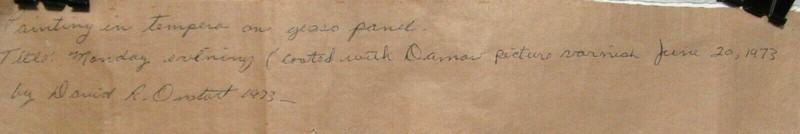 Painting in tempera on gesso panel.
Title: Monday evening (coated with Damar picture varnish June 20, 1973
by David R. Onstott 1973 —